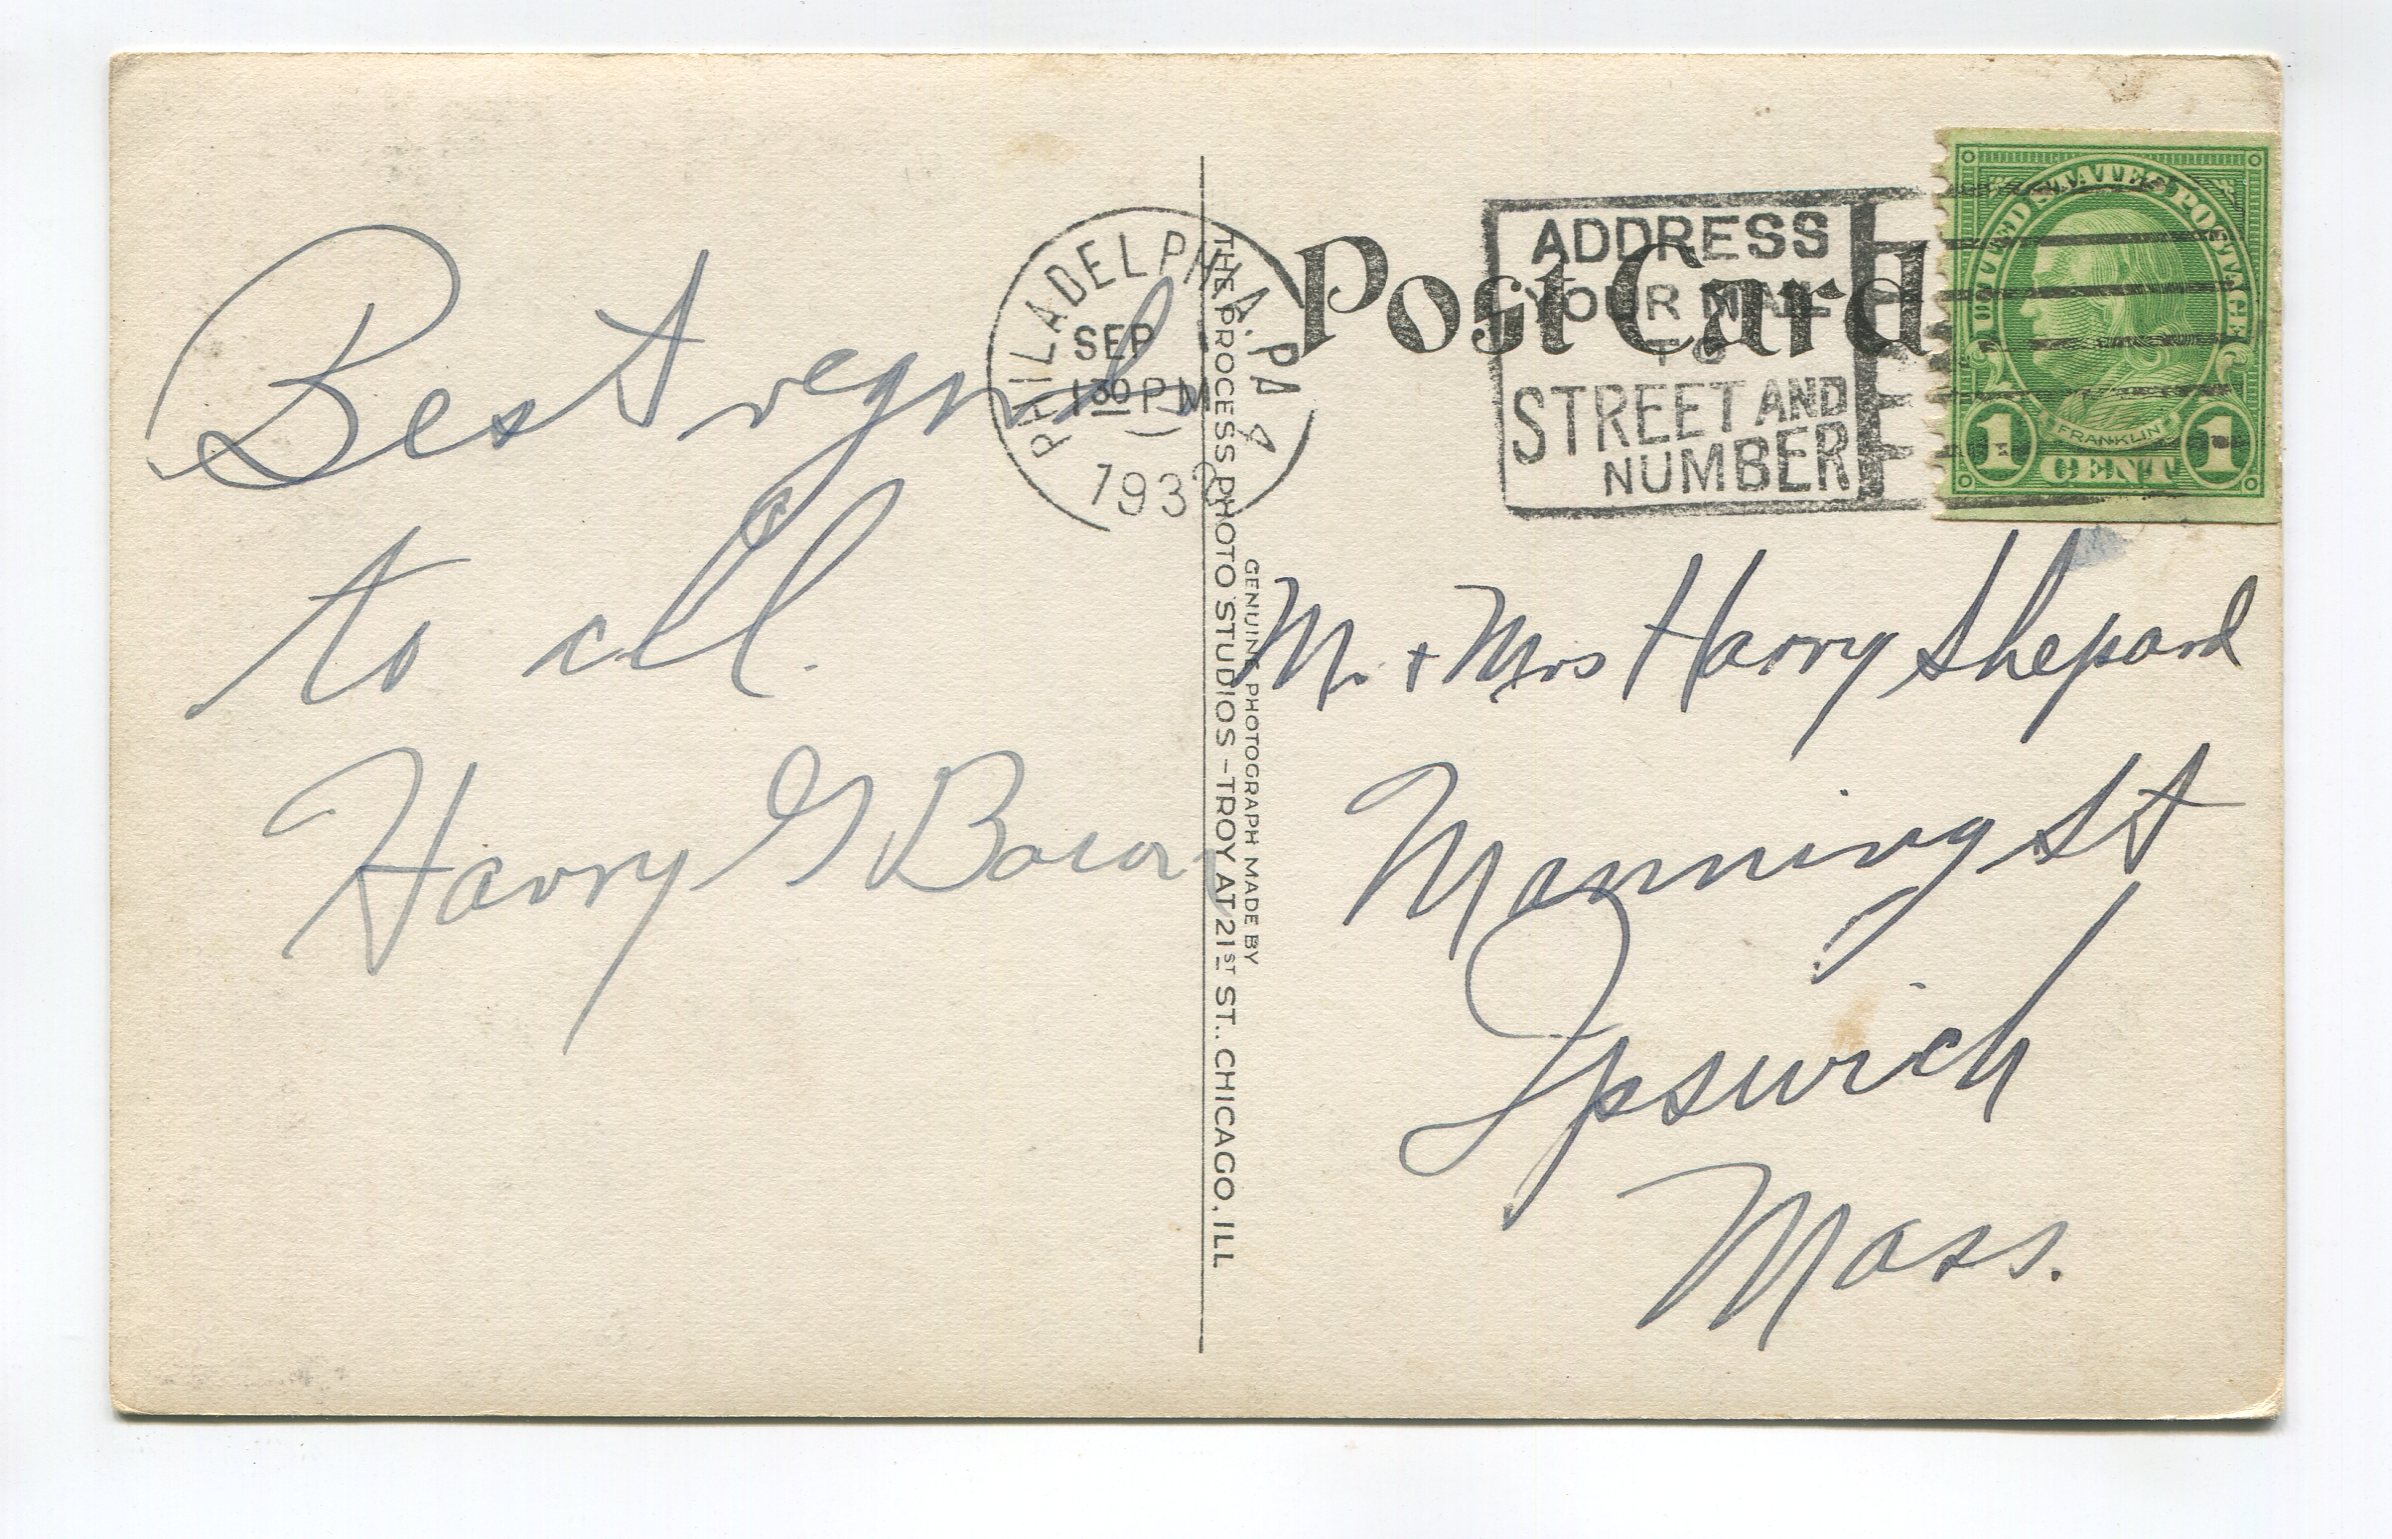 Best regards
to all.
Harry G Bacon
PHILADELPHIA, PA
SEP
1 30 PM
193
THE PROCESS PHOTO STUDIOS - TROY AT 21ST ST., CHICAGO, ILL
GENUINE PHOTOGRAPH MADE BY
Post Card
ADDRESS
YOUR MAIL
TO
STREET AND
NUMBER
UNITED STATES POSTAGE
FRANKLIN
1 CENT 1
Mr. + Mrs Harry Shepard
Manning St
Ipswich
Mass.